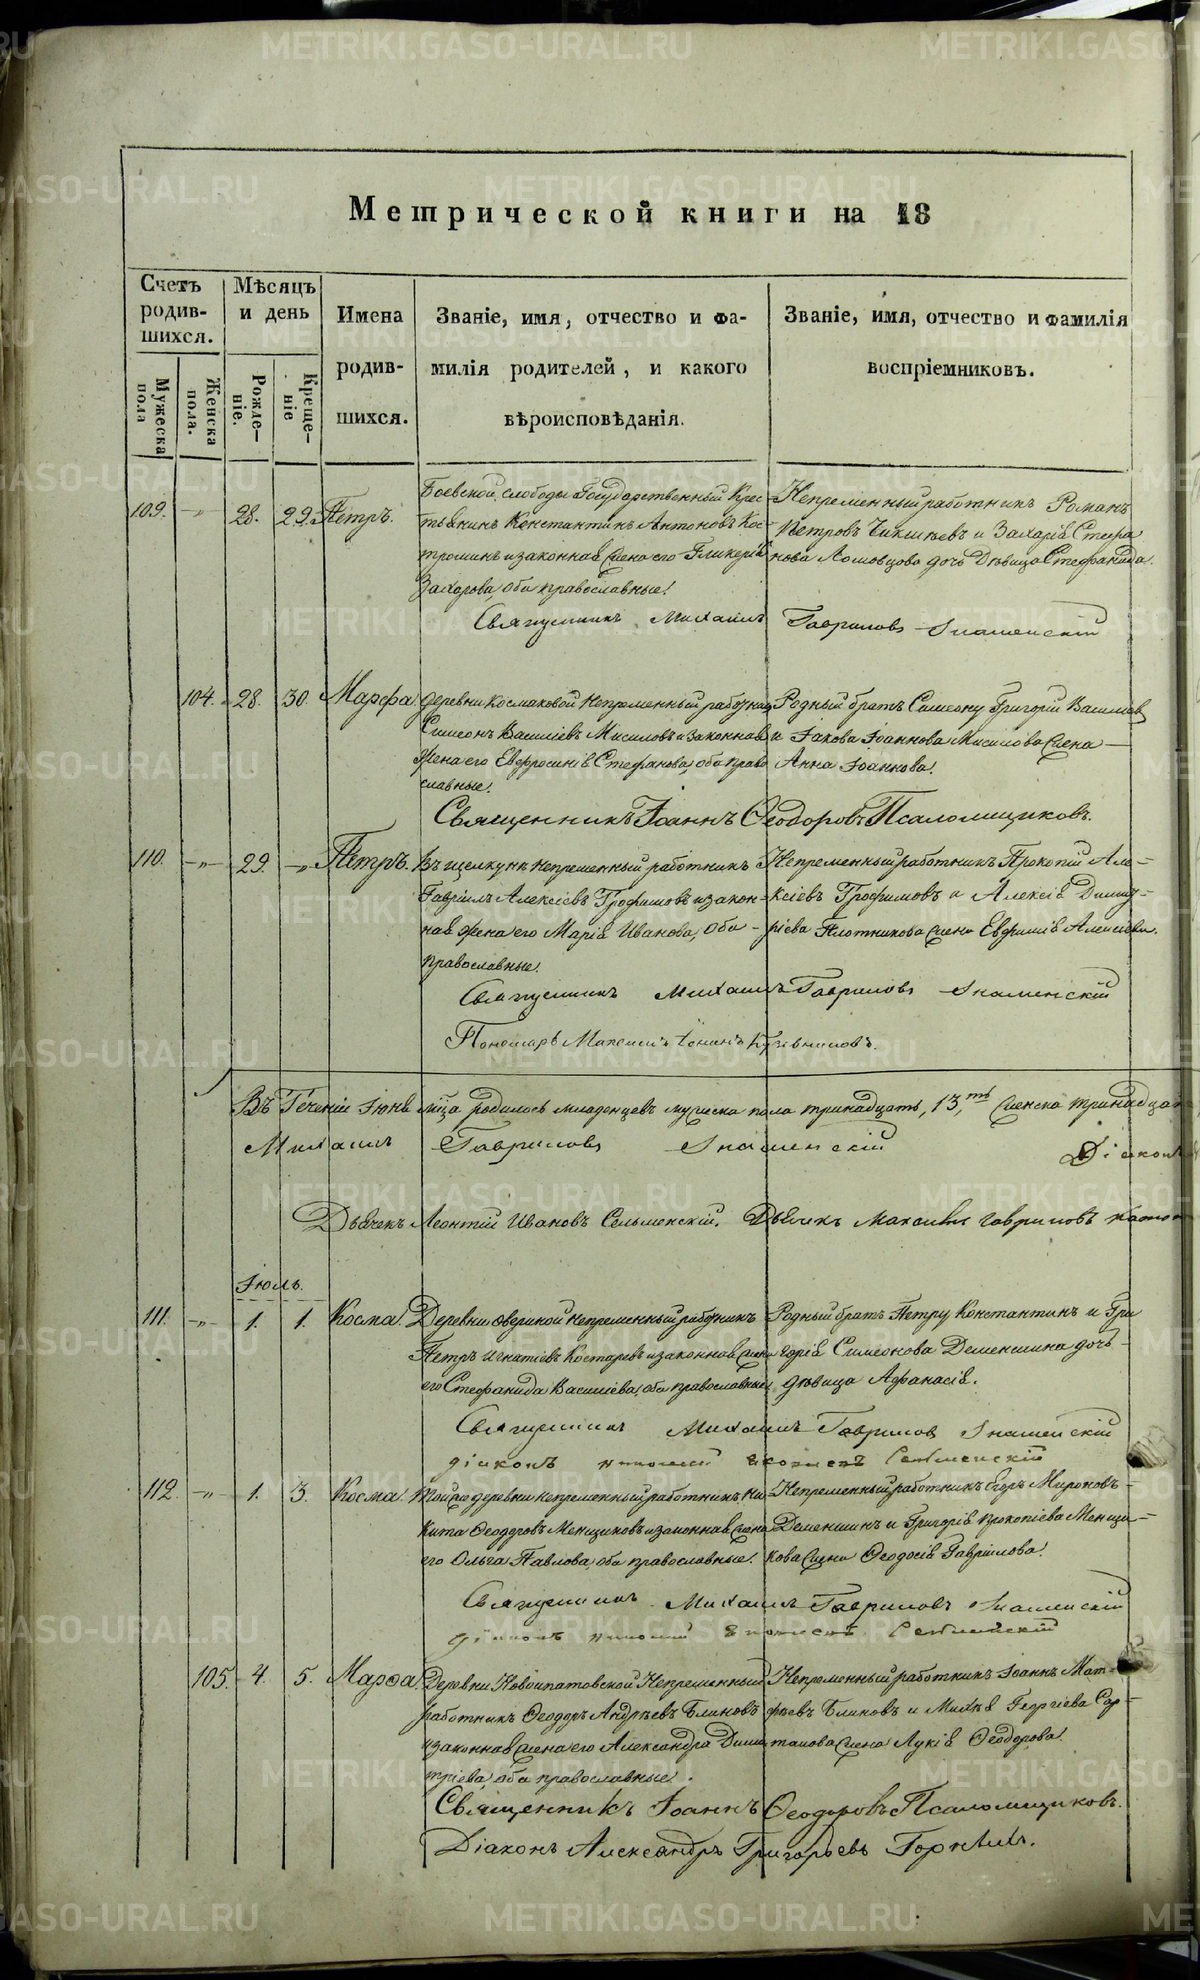 Метрической книги на 18
Счетъ родив-шихся.
Мѣсяцъ и день
Имена родив-шихся.
Званіе, имя, отчество и фа-
милія родителей, и какого
вѣроисповѣданія.
Званіе, имя, отчество и фамилія
воспріемниковъ.
Мужеска пола
Женска пола.
Рожде-ніе.
Креще-ніе
109. -„- 28. 29. Петръ.
Боевской слободы Государственный Крес-
тьянинъ Константинъ Антоновъ Кос-
троминъ и законная жена его Гликерія
Захарова, оба православные.
Непременный работникъ Романъ
Петровъ и Захарія Стефа
нова дочь Дѣвица Стефанида.
Священникъ Михаилъ Гавриловъ Знаменскій
104. 28. 30. Марфа.
Деревни Космаковой Непременный работникъ
Симеонъ Василіевъ Мисиловъ и законная
жена его Евфросинія Стефанова, оба право
славные.
Родный братъ Симеону Григорій Василіевъ
и Іакова Іоаннова Мисилова жена
Анна Іоаннова.
Священникъ Іоаннъ Ѳеодоровъ Псаломщиковъ.
110. -„- 29. -„ Петръ.
Въ щелкунѣ непременный работникъ
Гавріилъ Алексіевъ Трофимовъ и закон-
ная жена его Марія Иванова, оба
православные.
Непременный работникъ Прокопій Але-
ксіевъ Трофимовъ и Алексія Димит-
ріева Плотникова жена Евфимія Алексіева.
Священникъ Михаилъ Гавриловъ Знаменскій
Пономарь
Въ Теченіи Іюня мѣца родилось младенцевъ мужеска пола тринадцать, 13, женска тринадцат
Михаилъ Гавриловъ Знаменскій Діаконъ
Дьячекъ Леонтій Ивановъ Сельменскій. Дьячекъ Максимъ Гавриловъ
Іюль.
111. -„- 1. 1. Косма.
Деревни Авериной непременный работникъ
Петръ Игнатіевъ Костаревъ и законная жена
его Стефанида Василіева, оба православные
Родный братъ Петру Константинъ и Гри
горія Симеонова Деменшина дочь
дѣвица Афанасія.
Священникъ Михаилъ Гавриловъ Знаменскій
діаконъ Николай Сельменскій
112. -„- 1. 3. Косма.
Той же деревни непременный работникъ Ни
кита Ѳеодоровъ Менщиковъ и законная жена
его Ольга Павлова, оба православные.
Непременный работникъ Егоръ Мироновъ
Деменшинъ и Григорія Прокопіева Менщи-
кова жена Ѳеодосія Гаврилова.
Священникъ Михаилъ Гавриловъ Знаменскій
діаконъ Николай Сельменскій
105. 4. 5. Марѳа.
Деревни Новоипатовской Непременный
работникъ Ѳеодоръ Андрѣевъ Блиновъ
и законная жена его Александра Дими
тріева, оба православные.
Непременный работникъ Іоаннъ Мат-
фѣевъ Блиновъ и Георгіева Сор-
жена Лукія Ѳеодорова.
Священникъ Іоаннъ Ѳеодоровъ Псаломщиковъ.
Діаконъ Александръ Григорьевъ Горныхъ.
METRIKI.GASO-URAL.RU